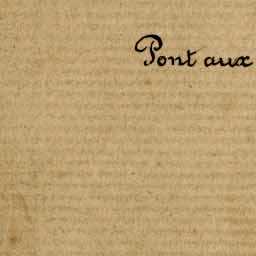 Pont aux